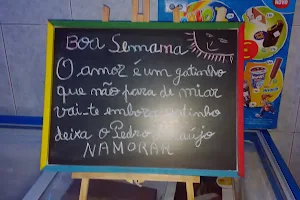 Boa Semana
O amor é um gatinho
que não para de miar
vai-te embora gatinho
deixa o Pedro Araújo
NAMORAR
NOVO